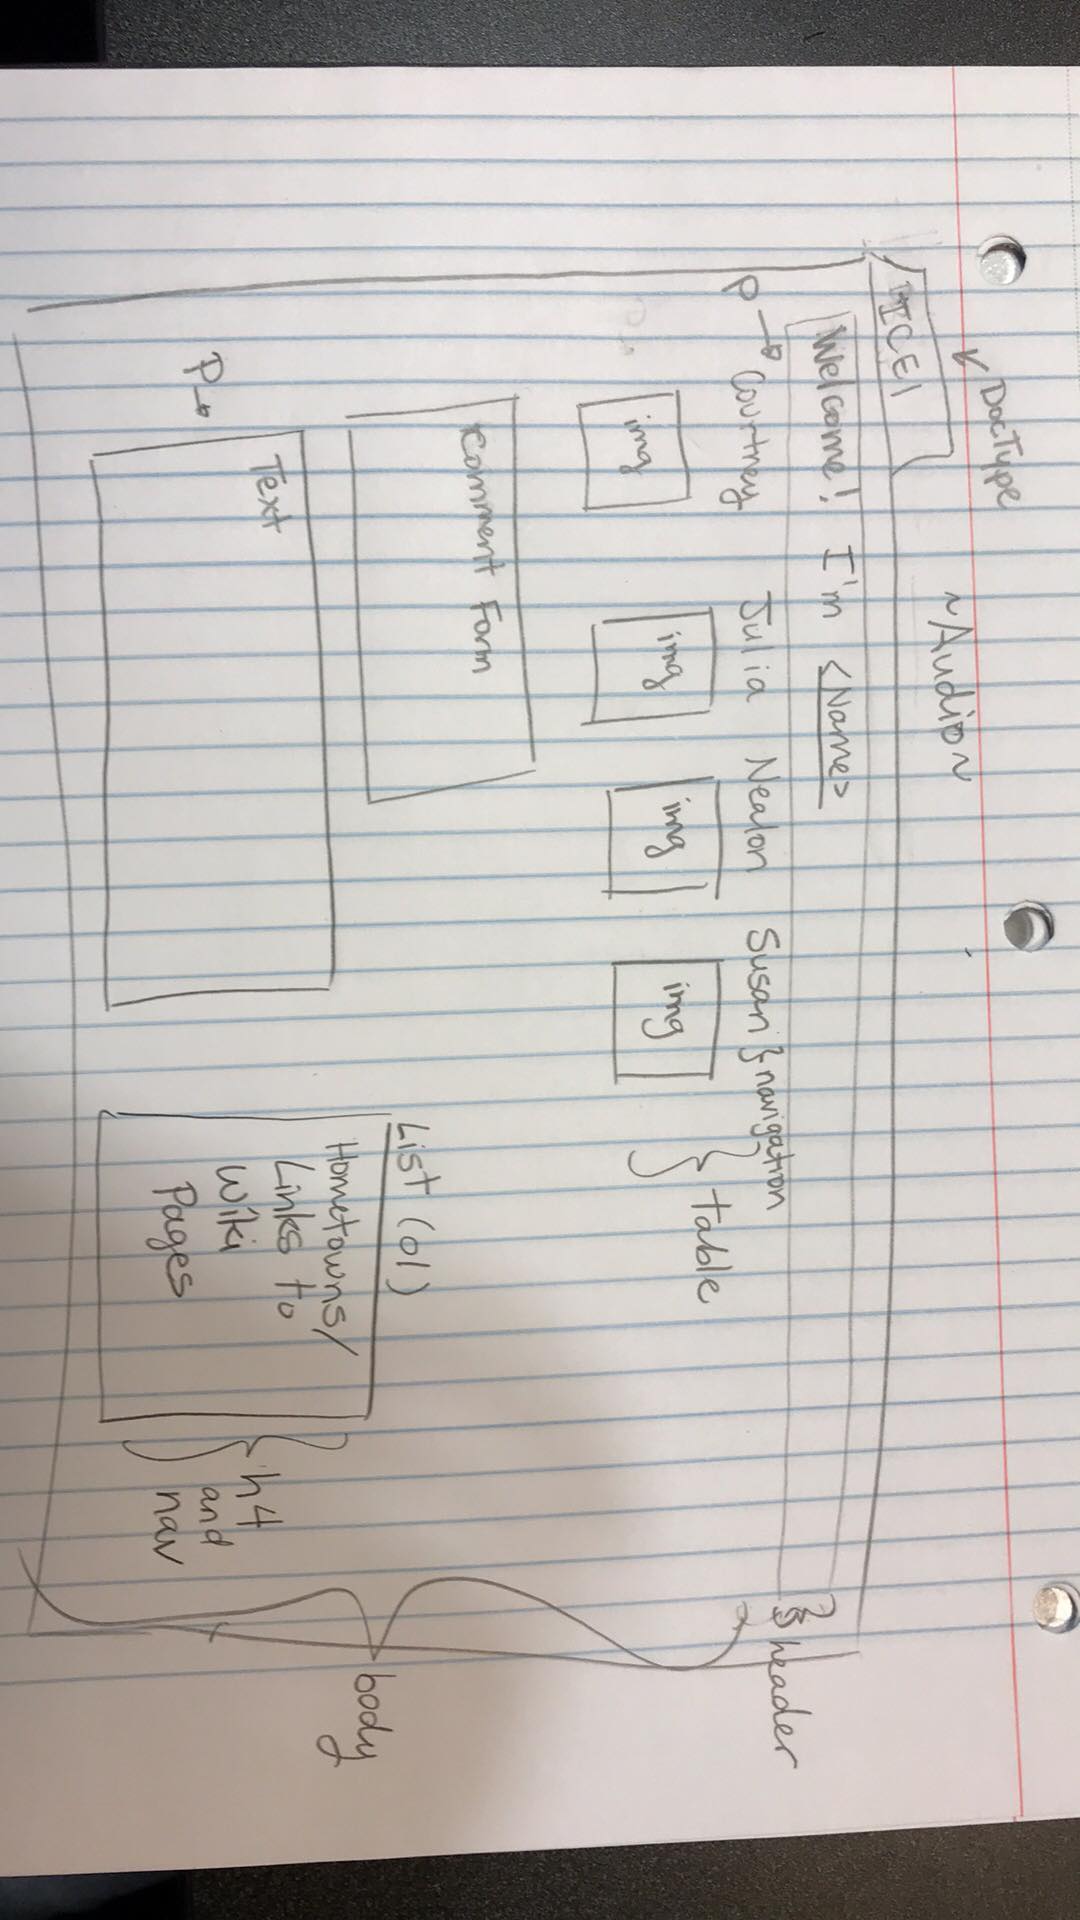 DocType
~Audio~
HCEI
Welcome! I'm <Name>
} header
P → Courtney Julia Nealon Susan } navigation
img img img img
} table
Comment Form
List (ol)
P→ Text
Hometowns/
Links to
Wiki
Pages
} h4
and
nav
body